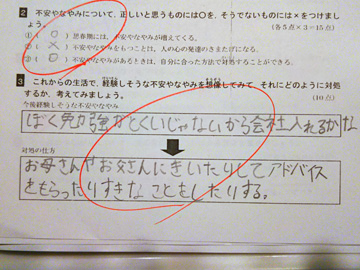 2 不安やなやみについて，正しいと思うものには○を，そうでないものには×をつけましょう。
(各5点×3＝15点)
①( ○ ) 思春期には，不安やなやみが増えてくる。
②( × ) 不安やなやみをもつことは，人の心の発達のさまたげになる。
③( ○ ) 不安やなやみがあるときは，自分に合った方法で対処することができる。
3 これからの生活で，経験しそうな不安やなやみを想像してみて，それにどのように対処するか，考えてみましょう。
(10点)
今後経験しそうな不安やなやみ
ぼく勉強がとくいじゃないから会社入れるかな
対処の仕方
お母さんやお父さんにきいたりしてアドバイス
をもらったりすきなことをしたりする。